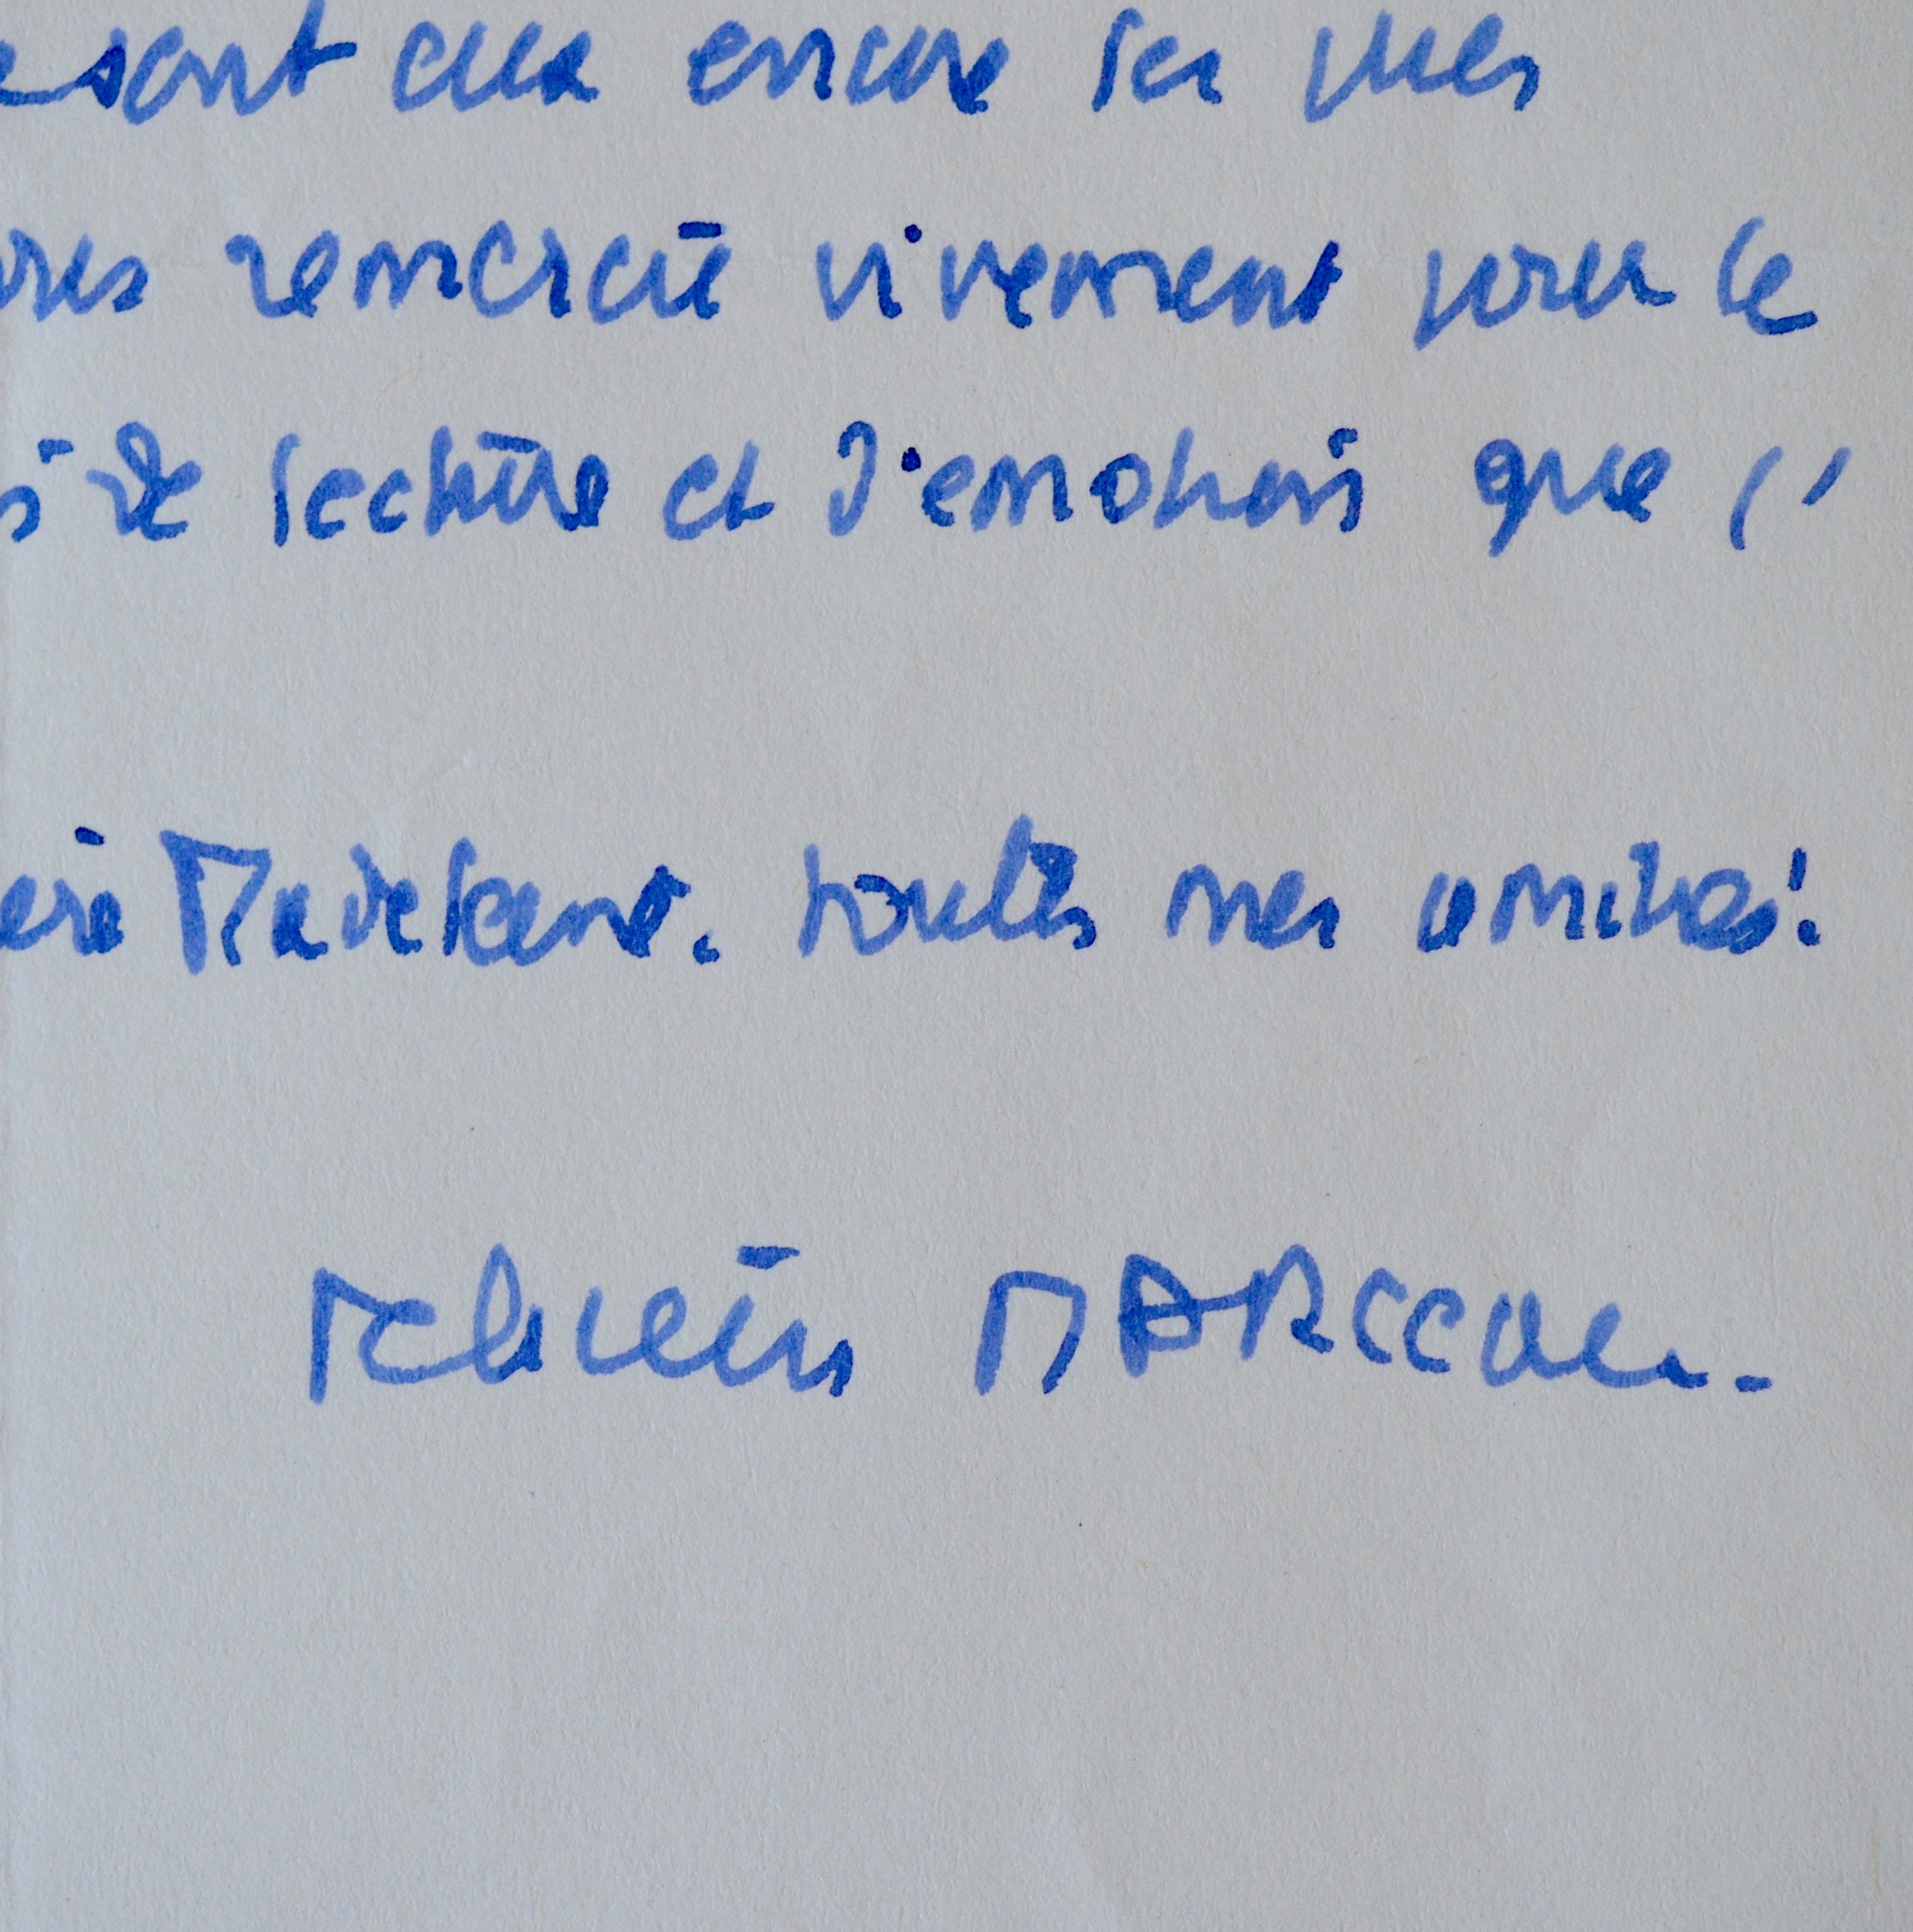 sont eux encore les plus
remercié vivement pour le
de lecture et d'émotions que j'
Madeleine. toutes mes amitiés!
Félicien MARCEAU.